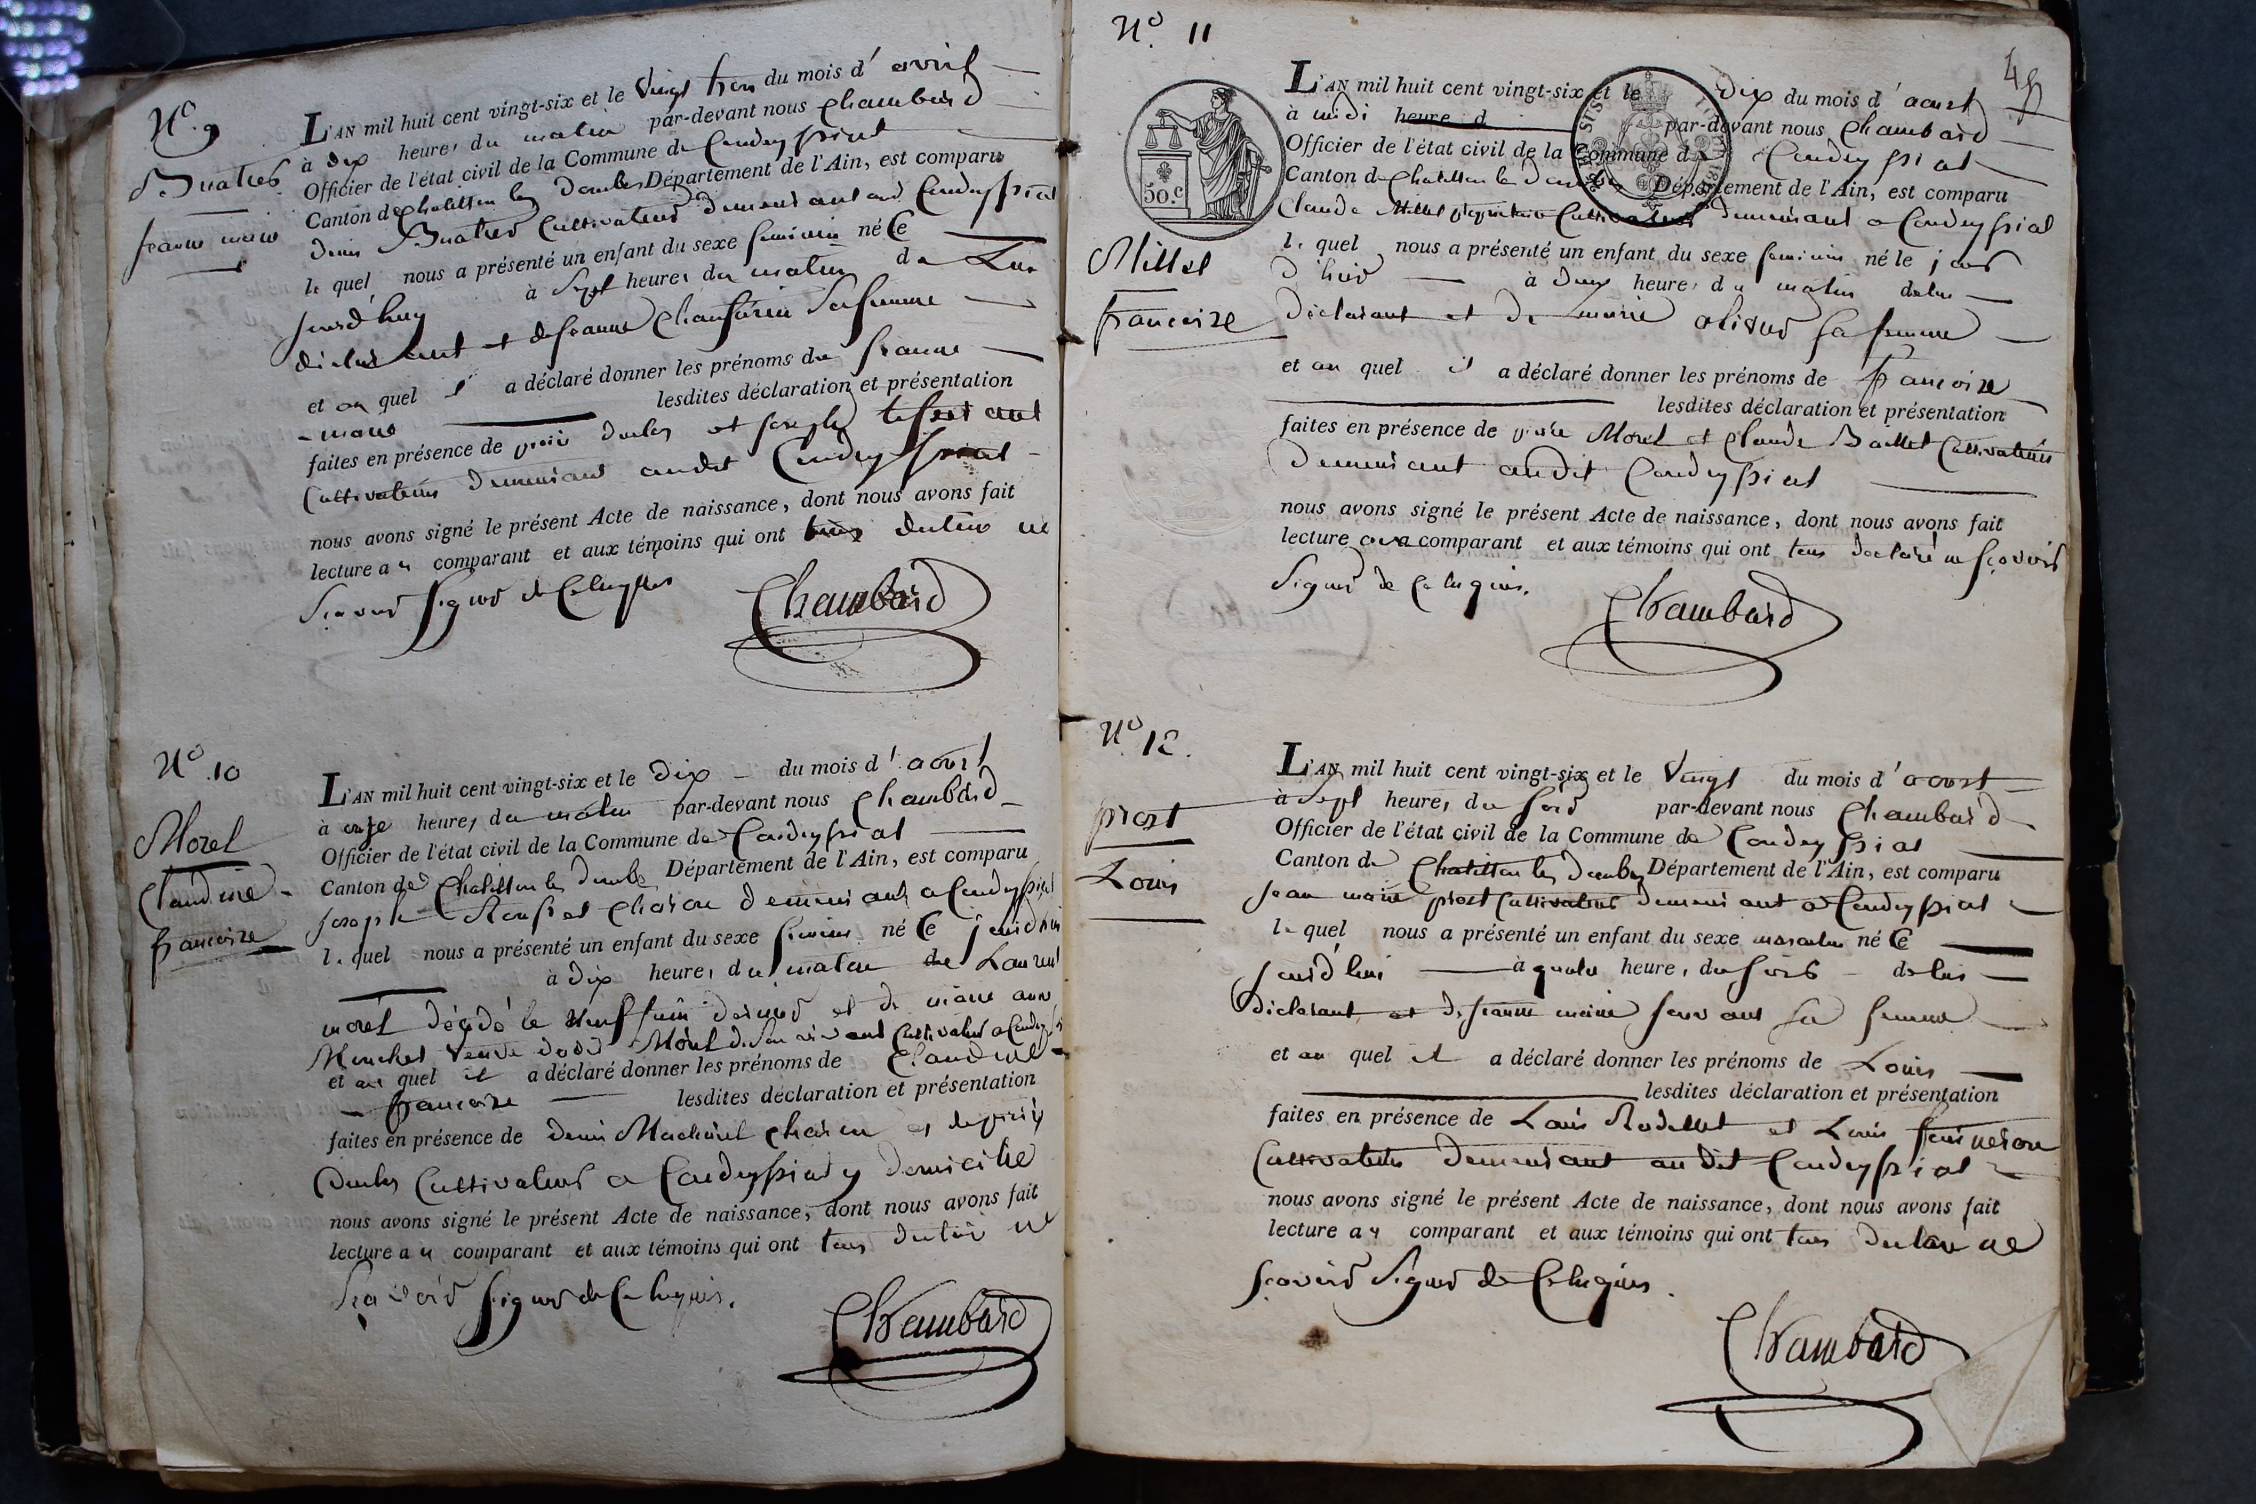 N.º 9
Buatier
Jeanne marie
L'AN mil huit cent vingt-six et le vingt trois du mois d'avril
à dix heures du matin par-devant nous Chambard
Officier de l'état civil de la Commune de Condeyssiat
Canton de Chatillon les Dombes Département de l'Ain, est comparu
denis Buatier Cultivateur demeurant aud Condeyssiat
le quel nous a présenté un enfant du sexe feminin né Ce
jourd'huy à Sept heures du matin de Lui
déclarant et de jeanne Sa femme
et au quel il a déclaré donner les prénoms de jeanne
marie lesdites déclaration et présentation
faites en présence de et joseph
Cultivateurs demeurant audit Condeyssiat
nous avons signé le présent Acte de naissance, dont nous avons fait
lecture au comparant et aux témoins qui ont tous déclaré ne
Scavoir signer de Ce enquis
Chambard
N.º 10
Morel
Claudine
francoise
L'AN mil huit cent vingt-six et le Dix du mois d'aoust
à onze heures du matin par-devant nous Chambard
Officier de l'état civil de la Commune de Condeyssiat
Canton de Chatillon les Dombe Département de l'Ain, est comparu
joseph demeurant a Condeyssiat
le quel nous a présenté un enfant du sexe feminin né Ce jourdhui
à dix heures du matin de Laurent
morel décédé le neuf juin dernier et de marie anne
veuve dudit Morel de Son vivant Cultivateur a Condeyssiat
et au quel il a déclaré donner les prénoms de Claudine
francoise lesdites déclaration et présentation
faites en présence de denis et de
Cultivateurs a Condeyssiat y domicilié
nous avons signé le présent Acte de naissance, dont nous avons fait
lecture au comparant et aux témoins qui ont tous déclaré ne
Scavoir signer de Ce enquis.
Chambard
N.º 11
49
50.c
Millet
francoise
L'AN mil huit cent vingt-six et le Dix du mois d'aoust
à midi heure d par-devant nous Chambard
Officier de l'état civil de la Commune de Condeyssiat
Canton de Chatillon les Dombes Département de l'Ain, est comparu
Claude Millet propriétaire Cultivateur demeurant a Condeyssiat
le quel nous a présenté un enfant du sexe feminin né le jour
d'hier à deux heures du matin de lui
déclarant et de marie olivier sa femme
et au quel il a déclaré donner les prénoms de francoise
lesdites déclaration et présentation
faites en présence de Morel et Claude Cultivateurs
Demeurant audit Condeyssiat
nous avons signé le présent Acte de naissance, dont nous avons fait
lecture au comparant et aux témoins qui ont tous déclaré ne scavoir
signer de Ce enquis.
Chambard
N.º 12.
prost
Louis
L'AN mil huit cent vingt-six et le vingt du mois d'aoust
à Sept heures du soir par-devant nous Chambard
Officier de l'état civil de la Commune de Condeyssiat
Canton de Chatillon les Dombes Département de l'Ain, est comparu
jean marie prost Cultivateur demeurant a Condeyssiat
le quel nous a présenté un enfant du sexe masculin né Ce
jourd'hui à quatre heures du soir de lui
déclarant et de jeanne marie sa femme
et au quel il a déclaré donner les prénoms de Louis
lesdites déclaration et présentation
faites en présence de Louis et Louis
Cultivateurs demeurant au dit Condeyssiat
nous avons signé le présent Acte de naissance, dont nous avons fait
lecture au comparant et aux témoins qui ont tous déclaré ne
scavoir Signer de Ce enquis.
Chambard